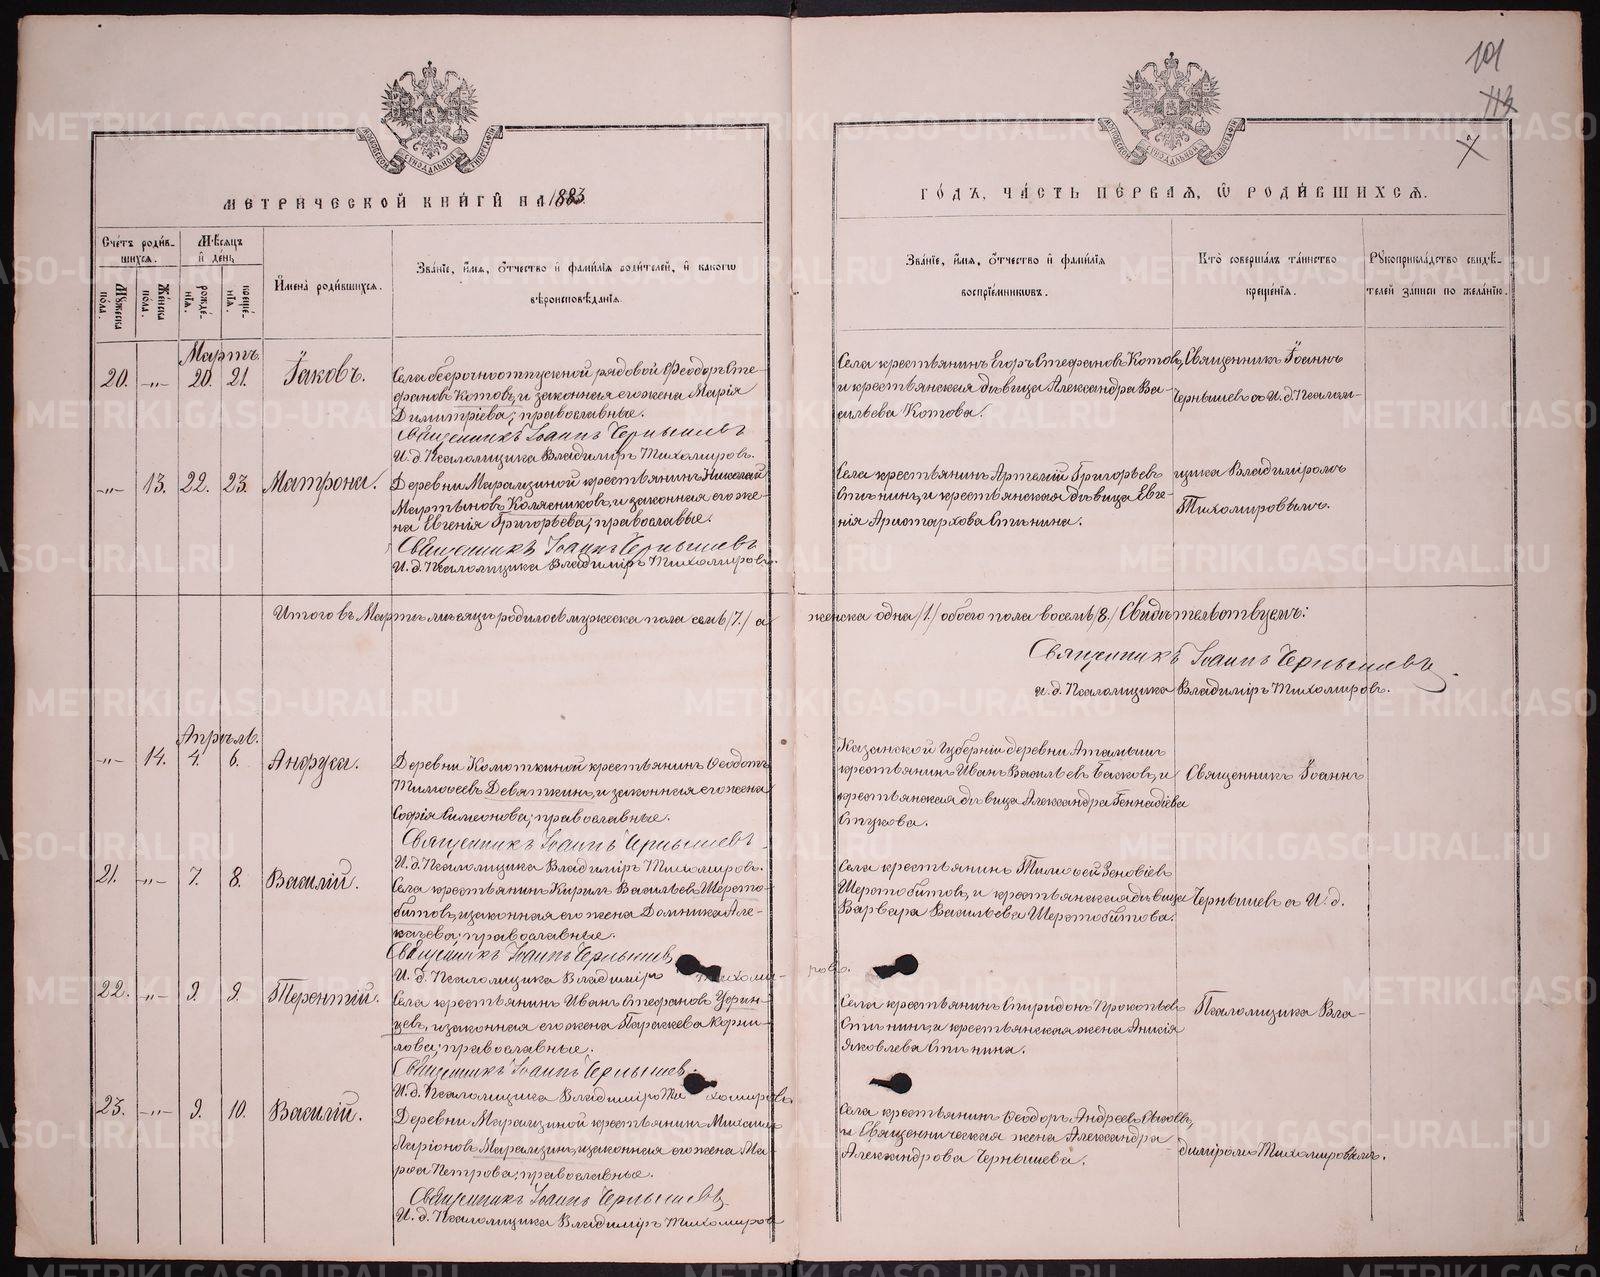 101
113
7
МОСКОВСКОЙ СѴНОДАЛЬНОЙ ТѴПОГРАФІИ
МОСКОВСКОЙ СѴНОДАЛЬНОЙ ТѴПОГРАФІИ
МЕТРИЧЕСКОЙ КНИГИ НА 1883
ГОДЪ, ЧАСТЬ ПЕРВАЯ, Ѡ РОДИВШИХСЯ.
Счетъ родившихся.
Мужеска пола.
Женска пола.
Мѣсяцъ и день
рожденія.
крещенія.
Имена родившихся.
Званіе, имя, отчество и фамилія родителей, и какогѡ
вѣроисповѣданія.
Званіе, имя, отчество и фамилія
воспріемниковъ.
Кто совершалъ таинство
крещенія.
Рукоприкладство свидѣ-
телей записи по желанію.
Мартъ.
20. -„- 20. 21. Іаковъ.
Села безсрочноотпускной рядовой Ѳеодоръ Сте-
фановъ Котовъ, и законная его жена Марія
Димитріева; православные.
Священникъ Іоаннъ Чернышевъ
И. д. Псаломщика Владиміръ Тихомировъ.
Села крестьянинъ Егоръ Стефановъ Котовъ,
и крестьянская дѣвица Александра Ва-
сильева Котова.
Священникъ Іоаннъ
Чернышевъ и И. д. Псалом-
-„- 13. 22. 23. Матрона.
Деревни Марамзиной крестьянинъ Николай
Мартыновъ Колясниковъ, и законная его же-
на Евгенія Григорьева; православные.
Священникъ Іоаннъ Чернышевъ
И. д. Псаломщика Владиміръ Тихомировъ.
Села крестьянинъ Артемій Григорьевъ
Стѣнинъ, и крестьянская дѣвица Евге-
нія Аристархова Стѣнина.
щика Владиміромъ
Тихомировымъ.
Итого въ Мартѣ мѣсяцѣ родилось мужеска пола семь /7./ а женска одна /1./ обоего пола восемь /8./ Свидѣтельствуемъ:
Священникъ Іоаннъ Чернышевъ.
и. д. Псаломщика Владиміръ Тихомировъ.
Апрѣль.
-„- 14. 4. 6. Анфуса.
Деревни Комоткиной крестьянинъ Ѳеодотъ
Тимоѳеевъ Девяткинъ, и законная его жена
Софія Симеонова; православные.
Священникъ Іоаннъ Чернышевъ.
И. д. Псаломщика Владиміръ Тихомировъ.
Казанской Губерніи деревни
крестьянинъ Иванъ Васильевъ Басковъ, и
крестьянская дѣвица Александра Геннадіева
Стукова.
Священникъ Іоаннъ
21. -„- 7. 8. Василій.
Села крестьянинъ Кирилъ Васильевъ Шерсто-
битовъ, и законная его жена Домника Але-
ксѣева; православные.
Священникъ Іоаннъ Чернышевъ
И. д. Псаломщика Владиміръ Тихоми- ровъ.
Села крестьянинъ Тимоѳей Зеновіевъ
Шерстобитовъ, и крестьянская дѣвица
Варвара Васильева Шерстобитова.
Чернышевъ и И. д.
22. -„- 9. 9. Терентій.
Села крестьянинъ Иванъ Стефановъ
и законная его жена Параскева Корни-
лова; православные.
Священникъ Іоаннъ Чернышевъ.
И. д. Псаломщика Владиміръ Тихомировъ
Села крестьянинъ Спиридонъ Прокопьевъ
Стѣнинъ, и крестьянская жена Анисія
Яковлева Стѣнина.
Псаломщика Вла-
23. -„- 9. 10. Василій.
Деревни Марамзиной крестьянинъ Михаилъ
Ларіоновъ Марамзинъ, и законная его жена Ма-
рѳа Петрова; православные.
Священникъ Іоаннъ Чернышевъ.
И. д. Псаломщика Владиміръ Тихомировъ
Села крестьянинъ Ѳеодоръ Андреевъ Сысоевъ,
и Священническая жена Александра
Александрова Чернышева.
диміромъ Тихомировымъ.
METRIKI.GASO-URAL.RU